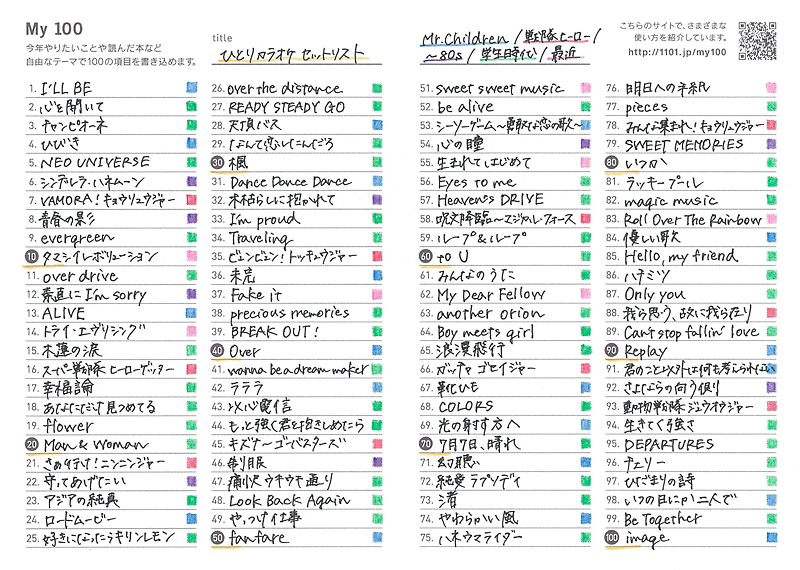 My 100
今年やりたいことや読んだ本など
自由なテーマで100の項目を書き込めます。
title
ひとりカラオケ セットリスト
Mr.Children / 戦隊ヒーロー /
〜80s / 学生時代 / 最近
こちらのサイトで、さまざまな
使い方を紹介しています。
http://1101.com/my100
1. I'LL BE
2. 心を開いて
3. チャンピオーネ
4. ひびき
5. NEO UNIVERSE
6. シンデレラ・ハネムーン
7. VAMORA! キョウリュウジャー
8. 青春の影
9. evergreen
10 タマシイレボリューション
11. over drive
12. 素直に I'm sorry
13. ALIVE
14. トライ・エヴリシング
15. 木蓮の涙
16. スーパー戦隊 ヒーローゲッター
17. 幸福論
18. あなただけ見つめてる
19. flower
20 Man & Woman
21. さぁ行け! ニンニンジャー
22. 守ってあげたい
23. アジアの純真
24. ロードムービー
25. 好きになったらキリンレモン
26. over the distance
27. READY STEADY GO
28. 天頂バス
29. なんて恋したんだろ
30 楓
31. Dance Dance Dance
32. 木枯らしに抱かれて
33. I'm proud
34. Traveling
35. ビュンビュン! トッキュウジャー
36. 未完
37. Fake it
38. precious memories
39. BREAK OUT!
40 Over
41. wanna be a dream maker
42. ラララ
43. 以心電信
44. もっと強く君を抱きしめたなら
45. キズナ〜ゴーバスターズ
46. 制服
47. 痛快ウキウキ通り
48. Look Back Again
49. やっつけ仕事
50 fanfare
51. sweet sweet music
52. be alive
53. シーソーゲーム〜勇敢な恋の歌〜
54. 心の瞳
55. 生まれてはじめて
56. Eyes to me
57. Heaven's DRIVE
58. 呪文降臨〜マジカル・フォース
59. ループ&ループ
60 to U
61. みんなのうた
62. My Dear Fellow
63. another orion
64. Boy meets girl
65. 浪漫飛行
66. ガッチャ ゴセイジャー
67. 靴ひも
68. COLORS
69. 光の射す方へ
70 7月7日、晴れ
71. 幻聴
72. 純愛ラプソディ
73. 渚
74. やわらかい風
75. ハネウマライダー
76. 明日への手紙
77. pieces
78. みんな集まれ! キョウリュウジャー
79. SWEET MEMORIES
80 いつか
81. ラッキープール
82. magic music
83. Roll Over The Rainbow
84. 優しい歌
85. Hello, my friend
86. ハチミツ
87. Only you
88. 我ら思う、故に我ら在り
89. Can't stop fallin' love
90 Replay
91. 君のこと以外は何も考えられない
92. さよならの向う側
93. 動物戦隊 ジュウオウジャー
94. 生きてく強さ
95. DEPARTURES
96. チェリー
97. ひだまりの詩
98. いつの日にか二人で
99. Be Together
100 image